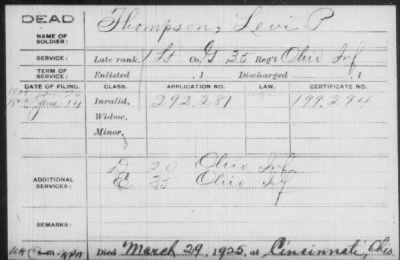 DEAD
NAME OF SOLDIER: Thompson, Levi P
SERVICE: Late rank, 1 Lt Co. G, 35 Reg't Ohio Inf
TERM OF SERVICE: Enlisted , 1 Discharged , 1
DATE OF FILING. CLASS. APPLICATION NO. LAW. CERTIFICATE NO.
June 14 Invalid, 292,281 199,294
Widow,
Minor,
ADDITIONAL SERVICES: D 20 Ohio Inf
E 35 Ohio Inf
REMARKS:
Died March 29, 1925, at Cincinnati, Ohio